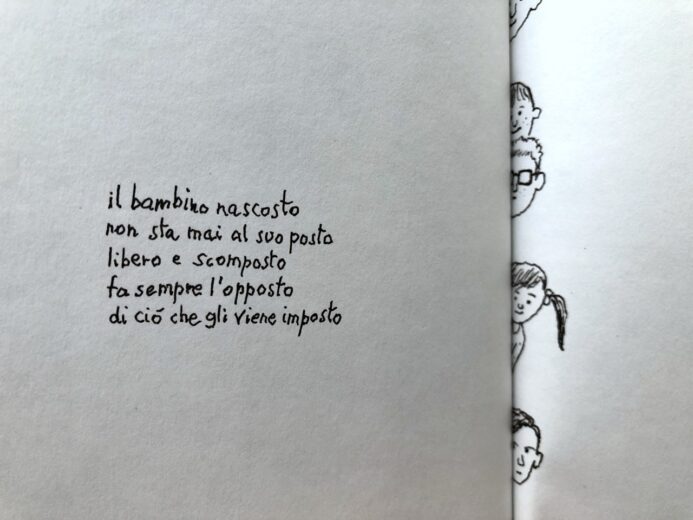 il bambino nascosto
non sta mai al suo posto
libero e scomposto
fa sempre l'opposto
di ció che gli viene imposto